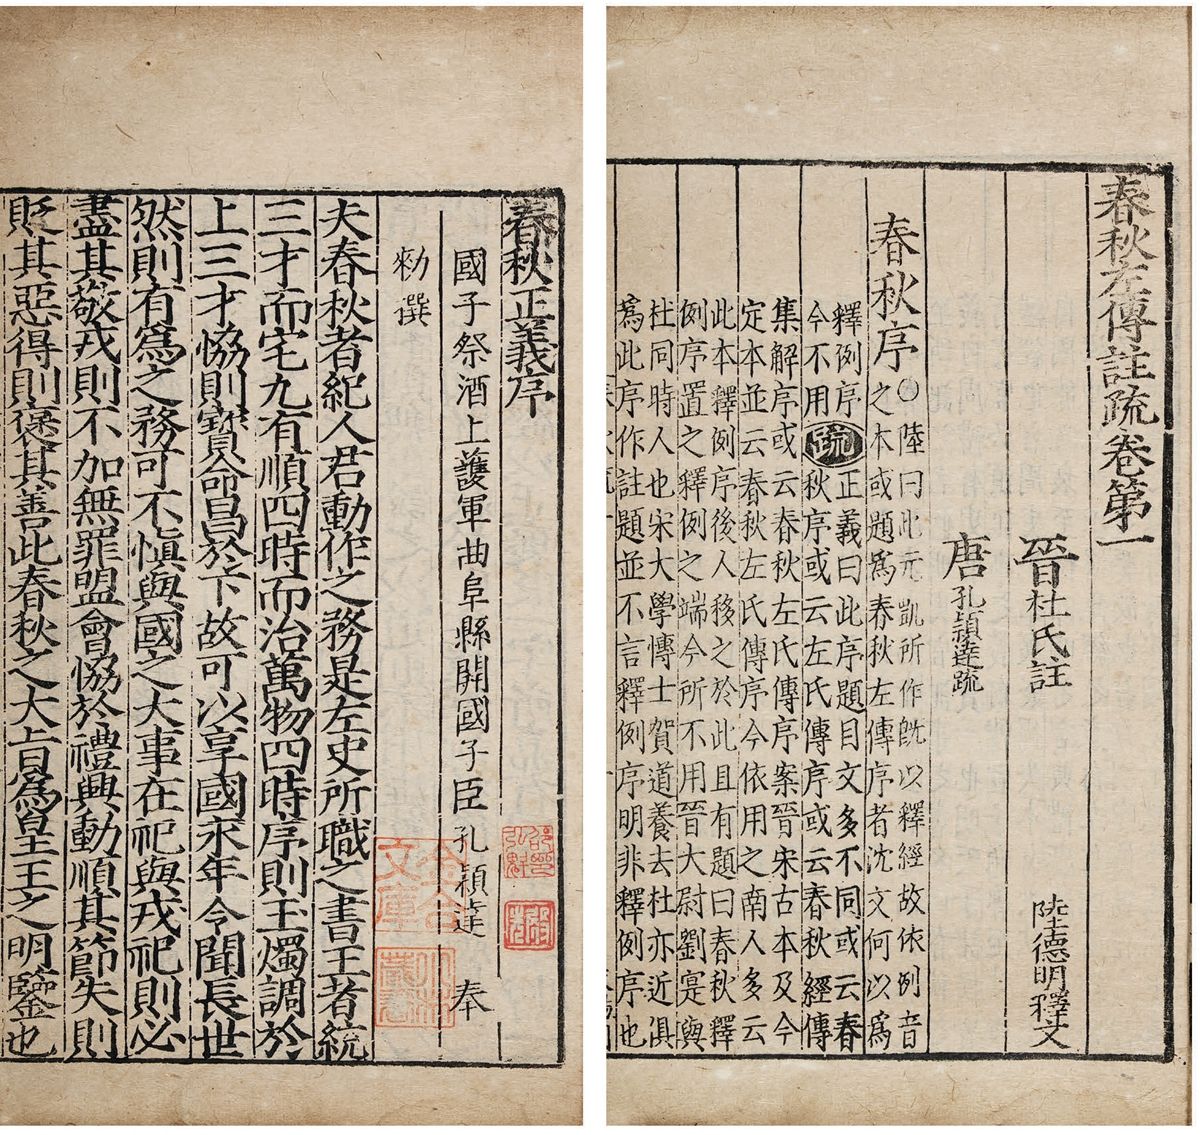 春秋左傳註疏卷第一
晉杜氏註 陸德明釋文
唐孔穎達疏
春秋序
○陸曰此元凱所作既以釋經故依例音
之本或題爲春秋左傳序者沈文何以爲
釋例序
今不用
疏
正義曰此序題目文多不同或云春
秋序或云左氏傳序或云春秋經傳
集解序或云春秋左氏傳序案晉宋古本及今
定本並云春秋左氏傳序今依用之南人多云
此本釋例序後人移之於此且有題曰春秋釋
例序置之釋例之端今所不用晉大尉劉寔與
杜同時人也宋大學博士賀道養去杜亦近俱
爲此序作註題並不言釋例序明非釋例序也
春秋正義序
國子祭酒上護軍曲阜縣開國子臣孔穎達 奉
勑撰
夫春秋者紀人君動作之務是左史所職之書王者統
三才而宅九有順四時而治萬物四時序則玉燭調於
上三才恊則寶命昌於下故可以享國永年令聞長世
然則有爲之務可不慎與國之大事在祀與戎祀則必
盡其敬戎則不加無罪盟會恊於禮興動順其節失則
貶其惡得則褒其善此春秋之大旨爲皇王之明鑒也